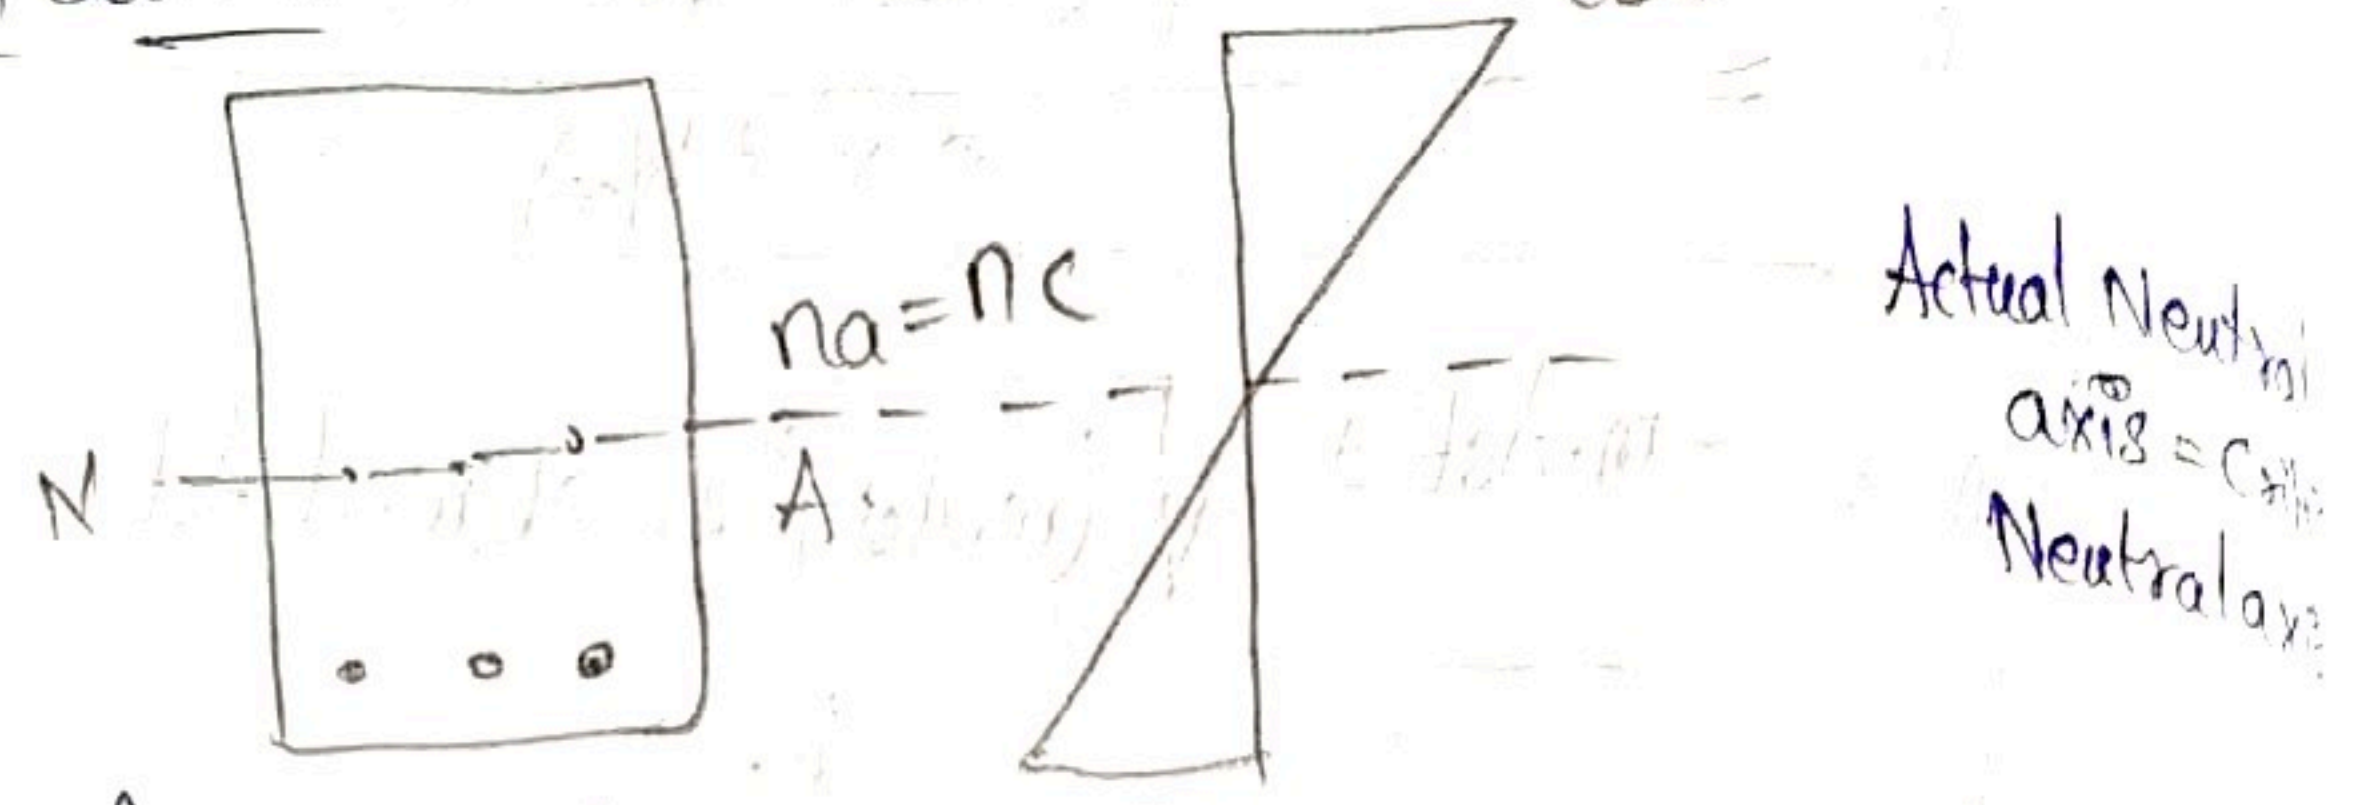 na=nc
N
A
Actual Neutral
axis =
Neutral